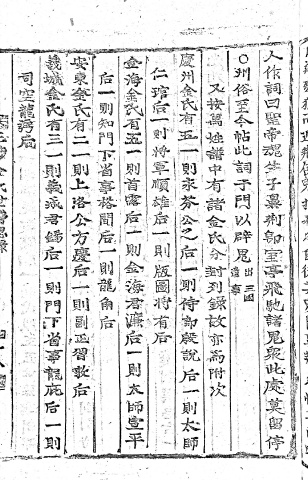 人作詞曰聖帝魂生子鼻荊郎室亭飛馳諸鬼衆此處莫留停
○州俗至今帖此詞于門以辟鬼出三國遺事
又按萬姓譜中有諸金氏分封列錄故亦爲附次
慶州金氏有五一則永芬公之后一則侍郎殷說后一則太師
仁琯后一則將軍順雄后一則版圖將有后
金海金氏有五一則首露后一則金海君濂后一則太師宣平
后一則知門下省事格間后一則龍角后
安東金氏有二一則上洛公方慶后一則副正習敦后
義城金氏有三一則義城君錫后一則門下省事龍庇后一則
司空龍